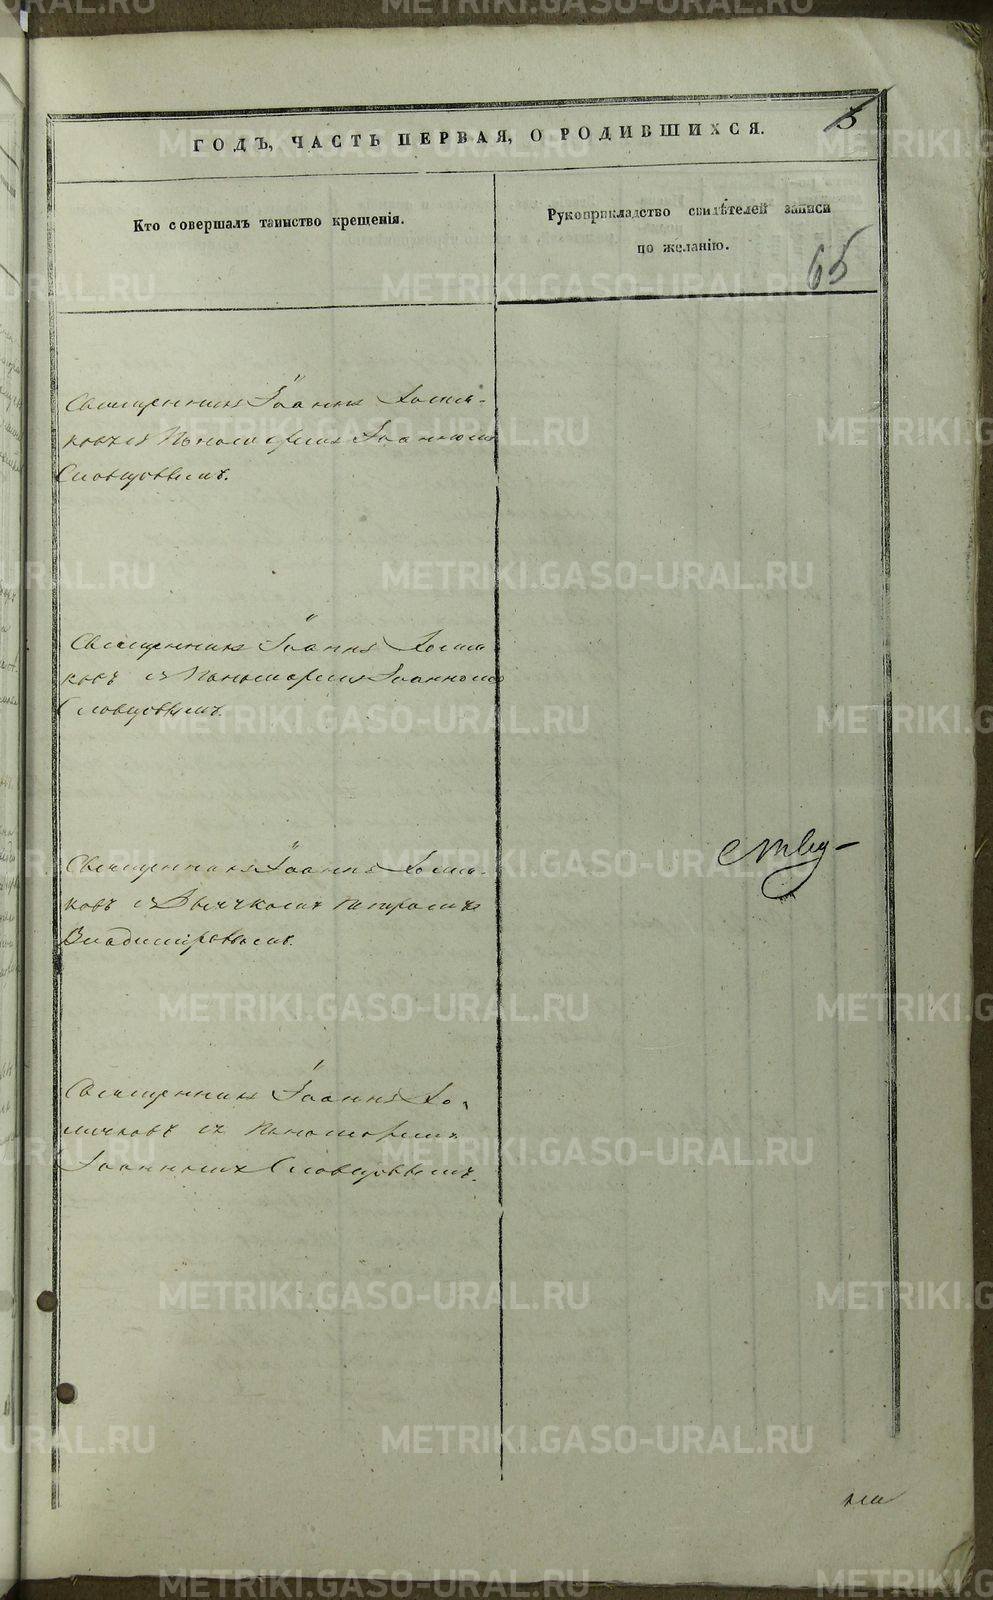 ГОДЪ, ЧАСТЬ ПЕРВАЯ, О РОДИВШИХСЯ.
5
Кто совершалъ таинство крещенія.
Рукоприкладство свидѣтелей записи
по желанію.
65
Священникъ Іоаннъ Хомя-
ковъ съ Пономаремъ Іоанномъ
Словцовымъ.
Священникъ Іоаннъ Хомя
ковъ съ Пономаремъ Іоанномъ
Словцовымъ.
Священникъ Іоаннъ Хомя-
ковъ съ Дьячкомъ Петромъ
Владиміровымъ.
Священникъ Іоаннъ Хо-
мяковъ съ Пономаремъ
Іоанномъ Словцовымъ.
METRIKI.GASO-URAL.RU